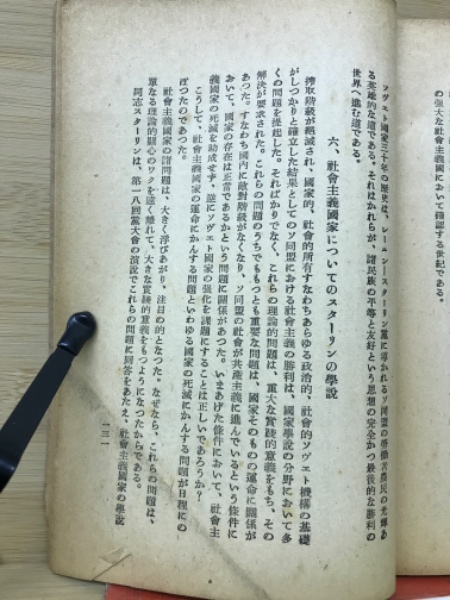 の强大な社會主義國において確認する世紀である。
ソヴェト國家三十年の歷史は、レーニン―スターリン黨に導かれるソ同盟の勞働者農民の光輝あ
る英雄的な道である。それはかれらが、諸民族の平等と友好という思想の完全かつ最後的な勝利の
世界へ進む道である。
六、社會主義國家についてのスターリンの學說
搾取階級が絕滅され、國家的、社會的所有すなわちあらゆる政治的、社會的ソヴェト機構の基礎
がしつかりと確立した結果としてのソ同盟における社會主義の勝利は、國家學說の分野において多
くの問題を提起した。そればかりでなく、これらの理論的問題は、重大な實踐的意義をもち、その
解決が要求された。これらの問題のうちでももつとも重要な問題は、國家そのものの運命に關係が
あつた。すなわち國內に敵對階級がなくなり、ソ同盟の社會が共產主義に進んでいるという條件に
おいて、國家の存在は正常であるかという問題に關係があつた。いまあげた條件において、社會主
義國家の死滅を助成せず、逆にソヴェト國家の强化を課題にすることは正しいであろうか？
こうして、社會主義國家の運命にかんする問題といわゆる國家の死滅にかんする問題が日程にの
ぼつたのであつた。
社會主義國家の諸問題は、大きく浮びあがり、注目の的となつた。なぜなら、これらの問題は、
單なる理論的關心のワクを遠く離れて、大きな實踐的意義をもつようになつたからである。
同志スターリンは、第一八回黨大會の演說でこれらの問題に回答をあたえ、社會主義國家の學說